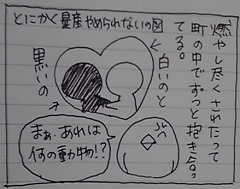 とにかく量産やめられないの図
燃やし尽くされたって
町の中でずっと抱き合っ
てる。
白いのと
黒いの
まぁ、あれは
何の動物!?